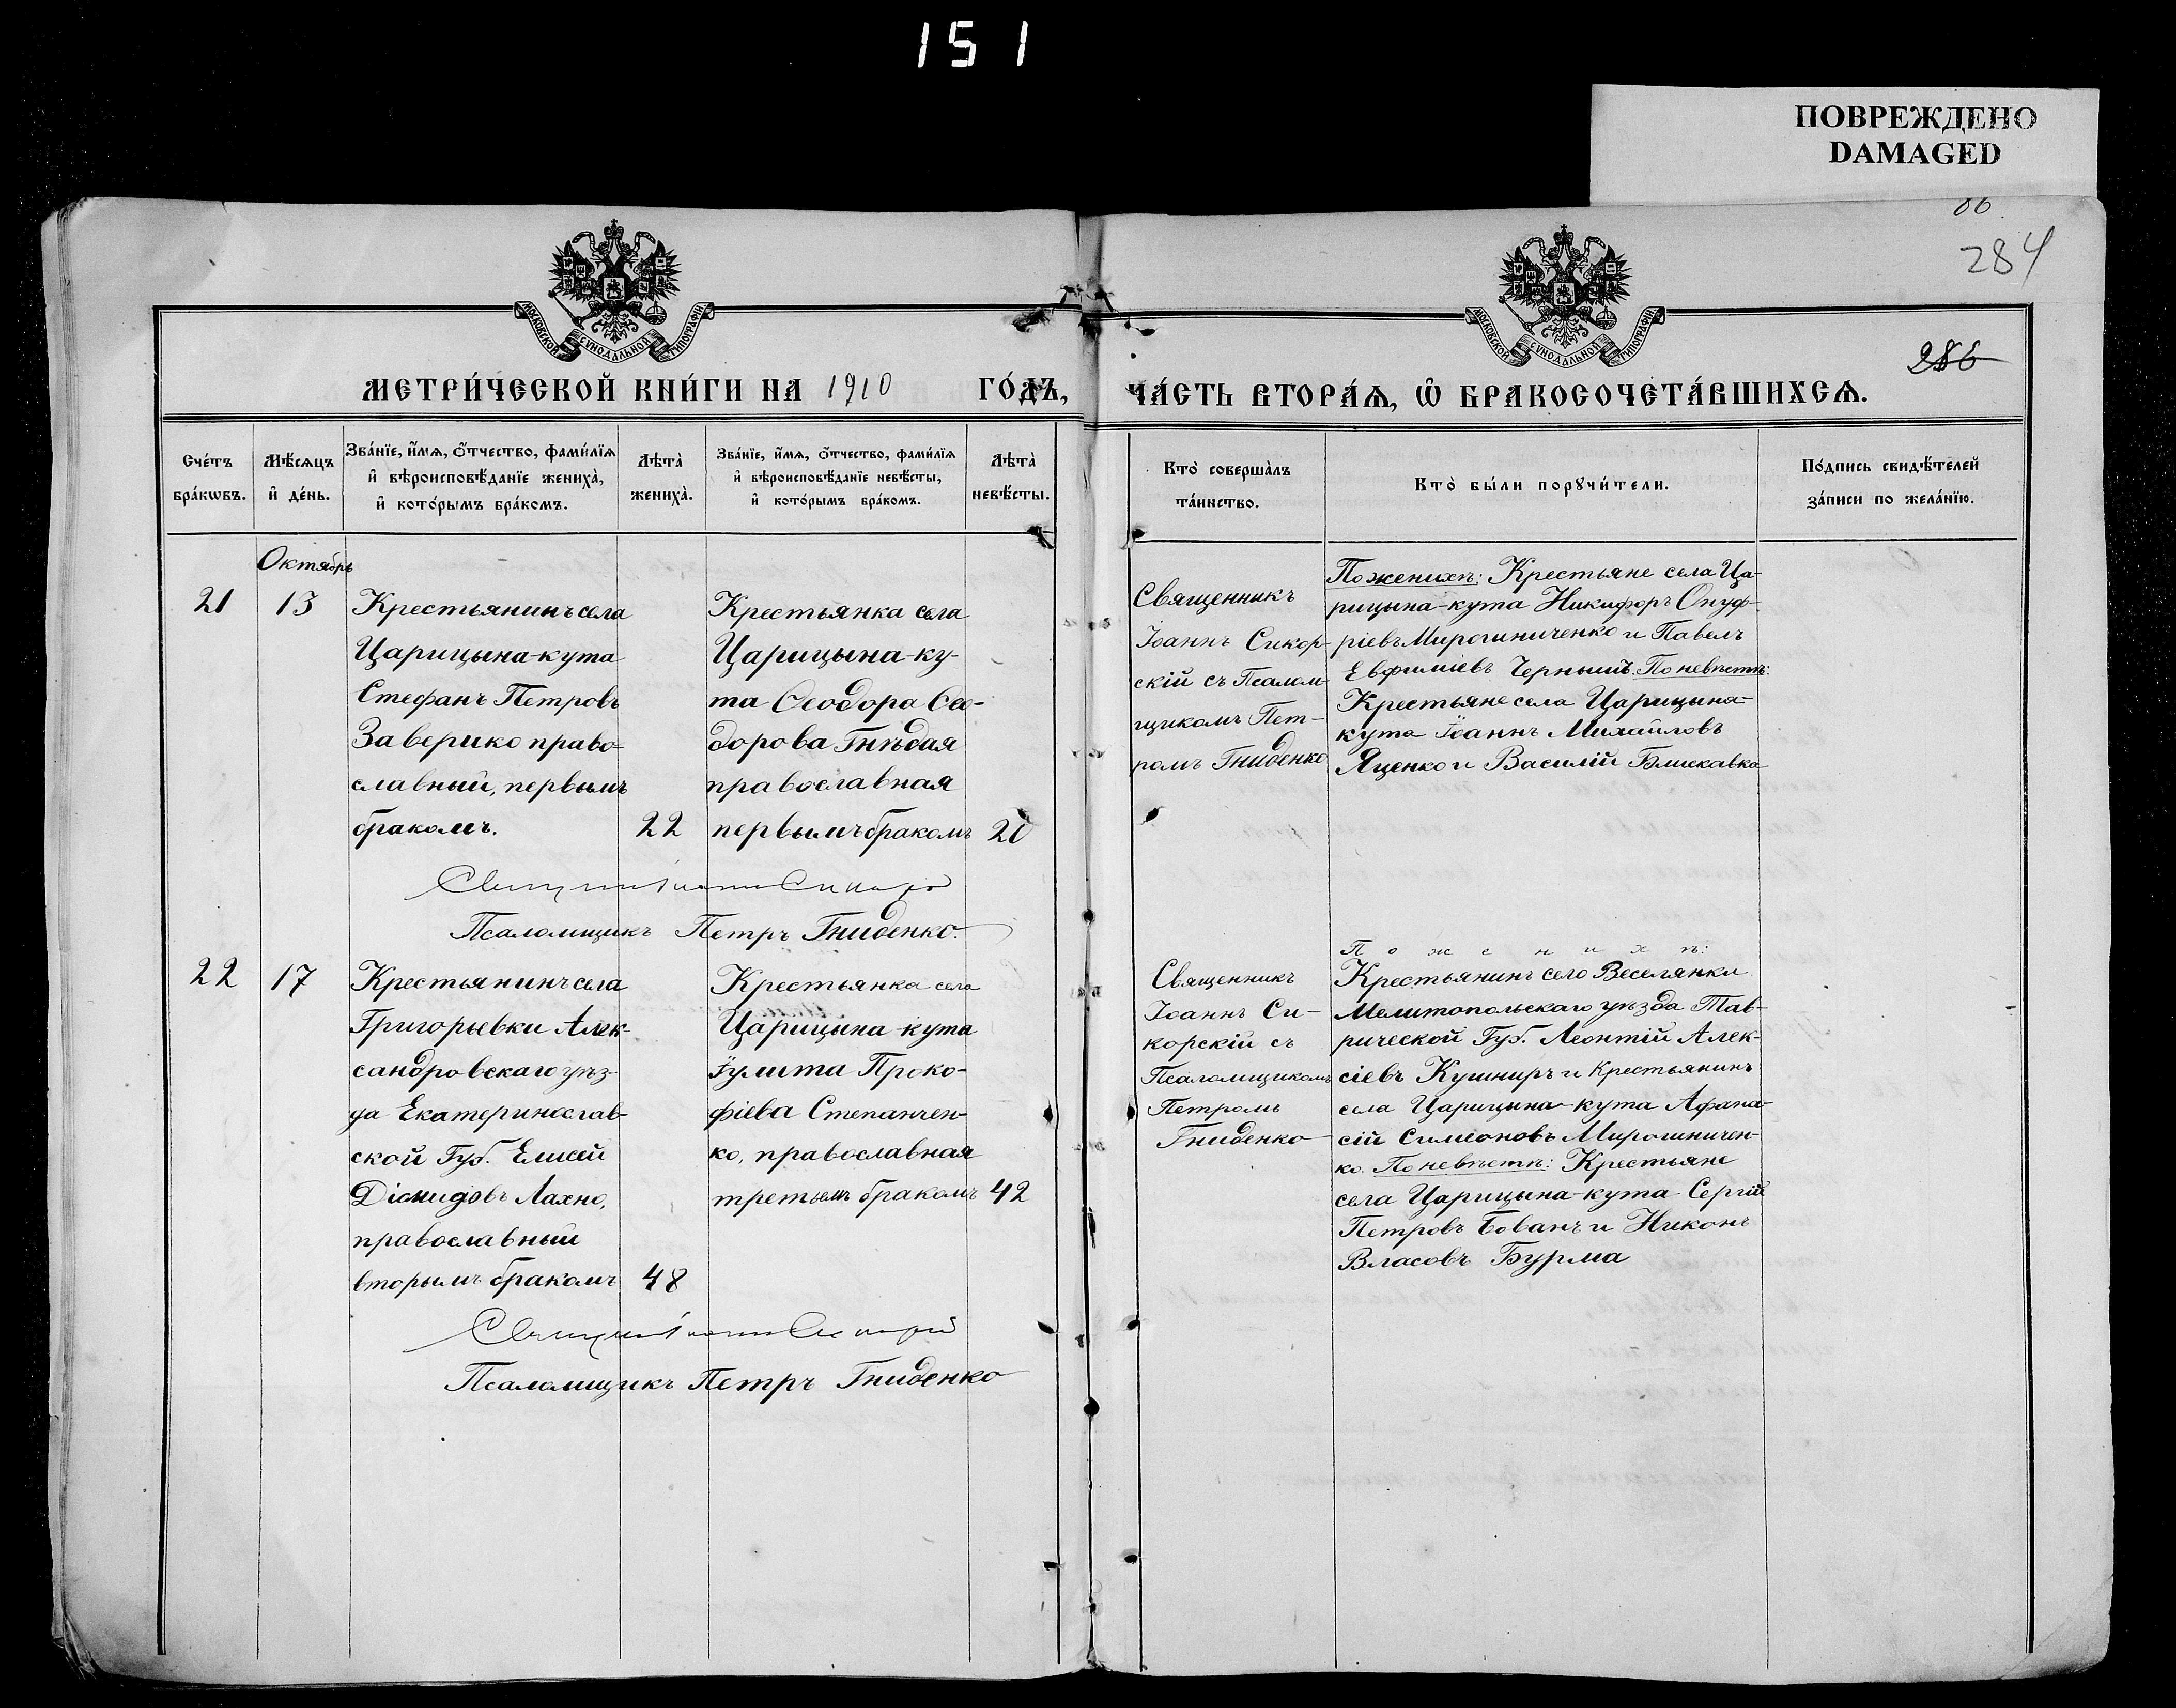 151
ПОВРЕЖДЕНО
DAMAGED
284
286
МОСКОВСКОЙ СѴНОДАЛЬНОЙ ТИПОГРАФІИ
МОСКОВСКОЙ СѴНОДАЛЬНОЙ ТИПОГРАФІИ
МЕТРИ́ЧЕСКОЙ КНИ́ГИ НА 1910 ГО́ДЪ,
ЧА́СТЬ ВТОРА́Ѧ, Ѽ БРАКОСОЧЕТА́ВШИХСѦ.
Сче́тъ
бра́кѡвъ.
Мѣ́сѧцъ
и҆ де́нь.
Зва́нїе, и҆́мѧ, ѻ҆́тчество, фами́лїѧ
и҆ вѣроисповѣ́данїе жениха̀,
и҆ кото́рымъ бра́комъ.
Лѣта̀
жениха̀.
Зва́нїе, и҆́мѧ, ѻ҆́тчество, фами́лїѧ
и҆ вѣроисповѣ́данїе невѣ́сты,
и҆ кото́рымъ бра́комъ.
Лѣта̀
невѣ́сты.
Кто̀ соверша̀лъ
та́инство.
Кто̀ бы́ли порꙋчи́тели.
По́дпись свидѣ́телей
за́писи по жела́нїю.
Октябрь
21
13
Крестьянинъ села
Царицына-кута
Стефанъ Петровъ
Заверико право-
славный, первымъ
бракомъ.
22
Крестьянка села
Царицына-ку-
та Ѳеодора Ѳео-
дорова Гнѣдая
православная
первымъ бракомъ
20
Священникъ
Іоаннъ Сикор-
скій съ Псалом-
щикомъ Пет-
ромъ Гниденко
По женихѣ: Крестьяне села Ца-
рицына-кута Никифоръ Онуф-
ріевъ Мирошниченко и Павелъ
Евфиміевъ Черный. По невѣстѣ:
Крестьяне села Царицына-
кута Іоаннъ Михайловъ
Яценко и Василій Блискавка
Псаломщикъ Петръ Гниденко.
22
17
Крестьянинъ села
Григорьевки Алек-
сандровскаго уѣз-
да Екатеринослав-
ской Губ. Елисей
Діомидовъ Лахно,
православный
вторымъ бракомъ
48
Крестьянка села
Царицына-кута
Іулита Проко-
фіева Степанчен-
ко, православная
третьимъ бракомъ
42
Священникъ
Іоаннъ Си-
корскій съ
Псаломщикомъ
Петромъ
Гниденко
По женихѣ:
Крестьянинъ село Веселянки
Мелитопольскаго уѣзда Тав-
рической Губ. Леонтій Алек-
сіевъ Кушниръ и Крестьянинъ
села Царицына-кута Афана-
сій Симеоновъ Мирошничен-
ко. По невѣстѣ: Крестьяне
села Царицына-кута Сергій
Петровъ Бованъ и Никонъ
Власовъ Бурма
Псаломщикъ Петръ Гниденко